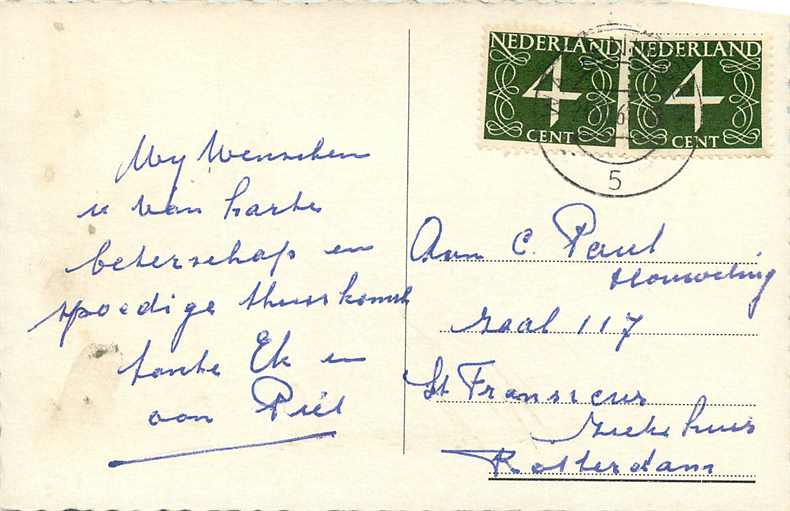 Wy Wenschen
u van harte
beterschap en
spoedige thuiskomst
tante Ek en
oom Piet
NEDERLAND
4
CENT
NEDERLAND
4
CENT
5
Aan C. Paul
Houweling
zaal 117
St Franxicus
Zieke huis
Rotterdam